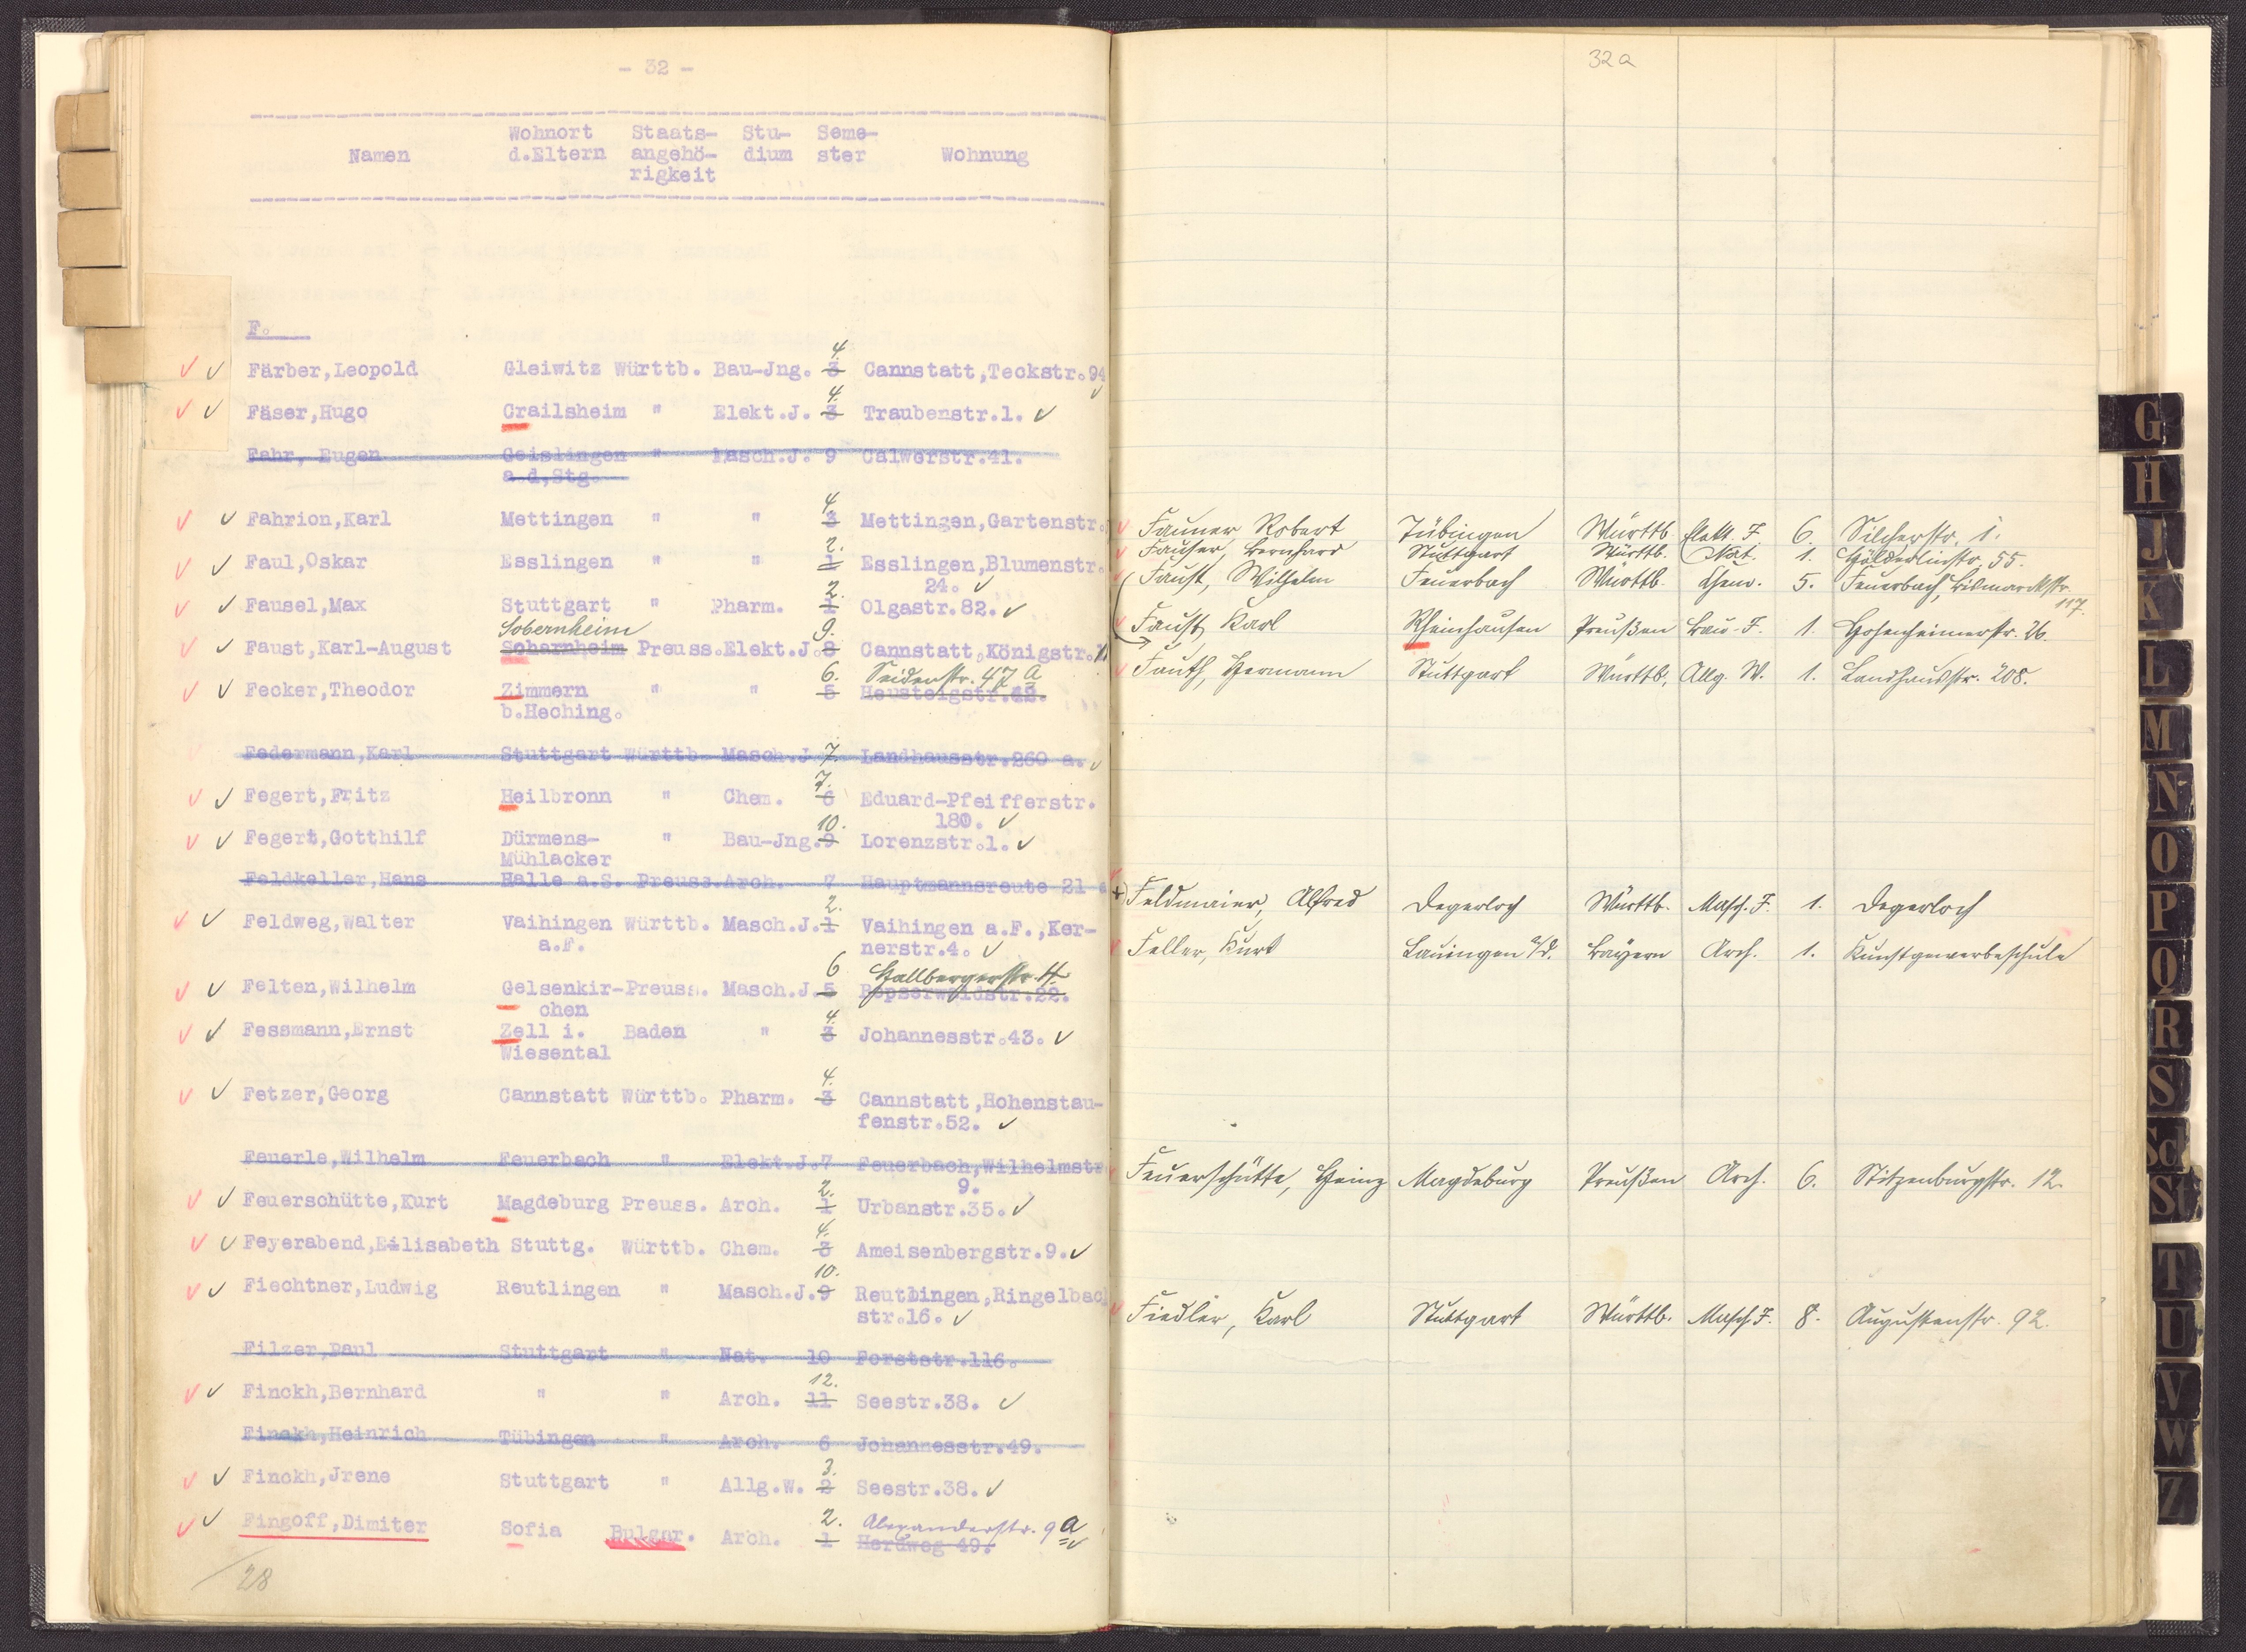 - 32 -
Namen Wohnort d.Eltern Staats-angehö-rigkeit Stu-dium Seme-ster Wohnung
F.
4.
Färber,Leopold Gleiwitz Württb. Bau-Jng. 3 Cannstatt,Teckstr.94
4.
Fäser,Hugo Crailsheim " Elekt.J. 3 Traubenstr.1.
Fahr, Eugen Geislingen " Masch.J. 9 Calwerstr.41.
a.d,Stg.
4.
Fahrion,Karl Mettingen " " 3 Mettingen,Gartenstr.
2.
Faul,Oskar Esslingen " " 1 Esslingen,Blumenstr.
24.
2.
Fausel,Max Stuttgart " Pharm. 1 Olgastr.82.
Sobernheim 9.
Faust,Karl-August Scharnheim Preuss.Elekt.J.8 Cannstatt,Königstr.
6. Seidenstr. 47 a
Fecker,Theodor Zimmern " " 5 Heusteigstr.42.
b.Heching.
Federmann,Karl Stuttgart Württb Masch.J 7. Landhausstr.260 a.
7.
Fegert,Fritz Heilbronn " Chem. 6 Eduard-Pfeifferstr.
180.
10.
Fegert,Gotthilf Dürmens- " Bau-Jng.9 Lorenzstr.1.
Mühlacker
Feldkeller,Hans Halle a.S. Preuss.Arch. 7 Hauptmannsreute 21
2.
Feldweg,Walter Vaihingen Württb. Masch.J.1 Vaihingen a.F.,Ker-
a.F. nerstr.4.
6 Hallbergerstr. 4.
Felten,Wilhelm Gelsenkir-Preuss. Masch.J.5 Bopserwaldstr.22.
chen
4.
Fessmann,Ernst Zell i. Baden " 3 Johannesstr.43.
Wiesental
4.
Fetzer,Georg Cannstatt Württb. Pharm. 3 Cannstatt,Hohenstau-
fenstr.52.
Feuerle,Wilhelm Feuerbach " Elekt.J.7 Feuerbach,Wilhelmstr
9.
2.
Feuerschütte,Kurt Magdeburg Preuss. Arch. 1 Urbanstr.35.
4.
Feyerabend,Eilisabeth Stuttg. Württb. Chem. 3 Ameisenbergstr.9.
10.
Fiechtner,Ludwig Reutlingen " Masch.J.9 Reutlingen,Ringelbac
str.16.
Filzer,Paul Stuttgart " Nat. 10 Forststr.116.
12.
Finckh,Bernhard " " Arch. 11 Seestr.38.
Finckh,Heinrich Tübingen " Arch. 6 Johannesstr.49.
3.
Finckh,Jrene Stuttgart " Allg.W. 2 Seestr.38.
2. Alexanderstr. 9 a
Fingoff,Dimiter Sofia Bulgar. Arch. 1 Herdweg 49.
28
32a
Fauner Robert Tübingen Württb. Elekt. J. 6. Silcherstr. 1.
Fauser, Bernhard Stuttgart Württb. Nat. 1. Hölderlinstr. 55.
Faust, Wilhelm Feuerbach Württb. Chem. 5. Feuerbach, Bismarckstr.
117.
Faust, Karl Rheinhausen Preußen Bau-J. 1. Hohenheimerstr. 26.
Fauth, Hermann Stuttgart Württb. Allg. W. 1. Landhausstr. 208.
Feldmaier, Alfred Degerloch Württb. Masch. J. 1. Degerloch
Feller, Kurt Lauingen a/d. Bayern Arch. 1. Kunstgewerbeschule
Feuerschütte, Heinz Magdeburg Preußen Arch. 6. Stitzenburgstr. 12.
Fiedler, Karl Stuttgart Württb. Masch J. 8. Augustenstr. 92.
G
H
J
K
L
M
N
O
P
Q
R
S
Sch
St
T
U
V
W
Z